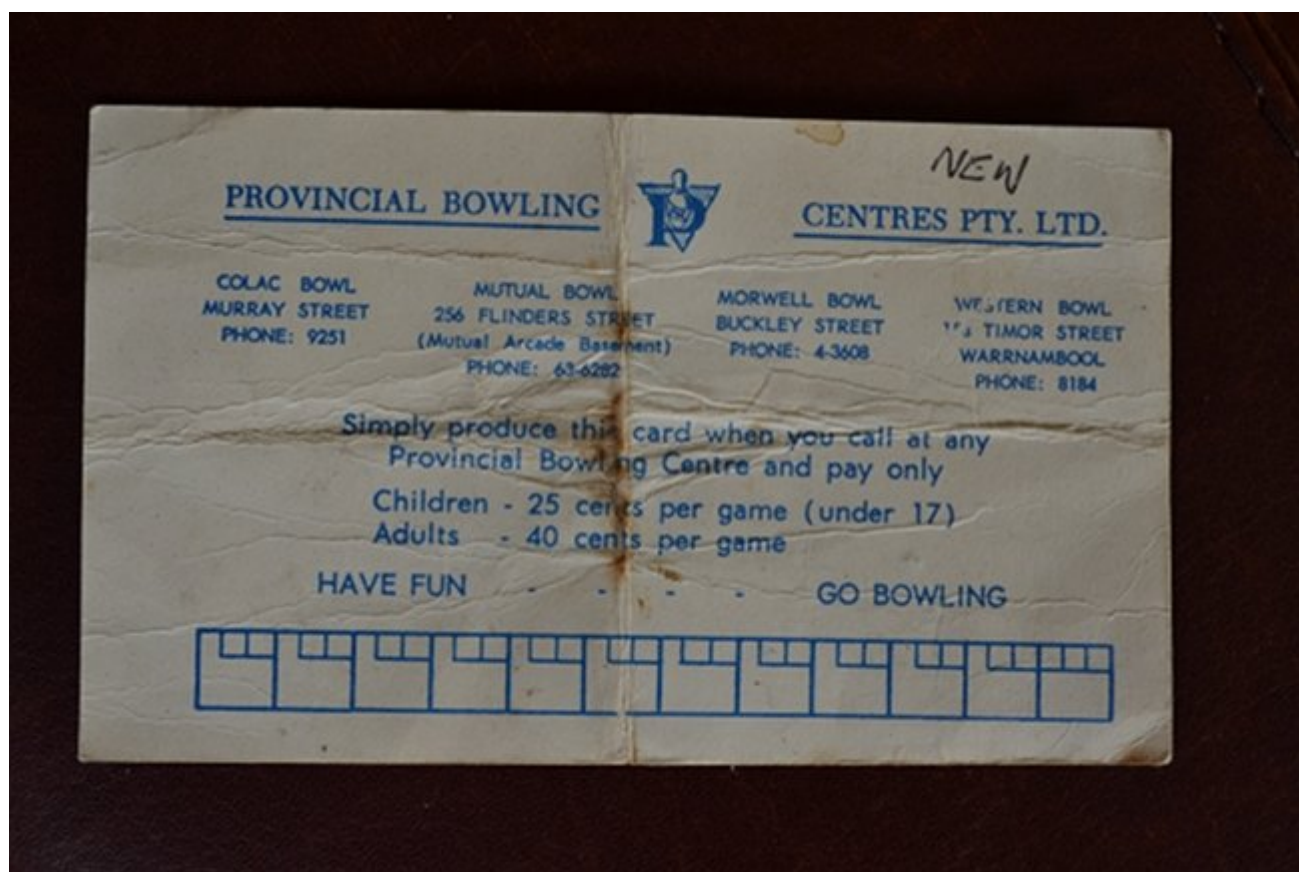 NEW
PROVINCIAL BOWLING P CENTRES PTY. LTD.
COLAC BOWL
MURRAY STREET
PHONE: 9251
MUTUAL BOWL
256 FLINDERS STREET
(Mutual Arcade Basement)
PHONE: 63-6282
MORWELL BOWL
BUCKLEY STREET
PHONE: 4-3608
WESTERN BOWL
TIMOR STREET
WARRNAMBOOL
PHONE: 8184
Simply produce this card when you call at any
Provincial Bowling Centre and pay only
Children - 25 cents per game (under 17)
Adults - 40 cents per game
HAVE FUN - - - - GO BOWLING